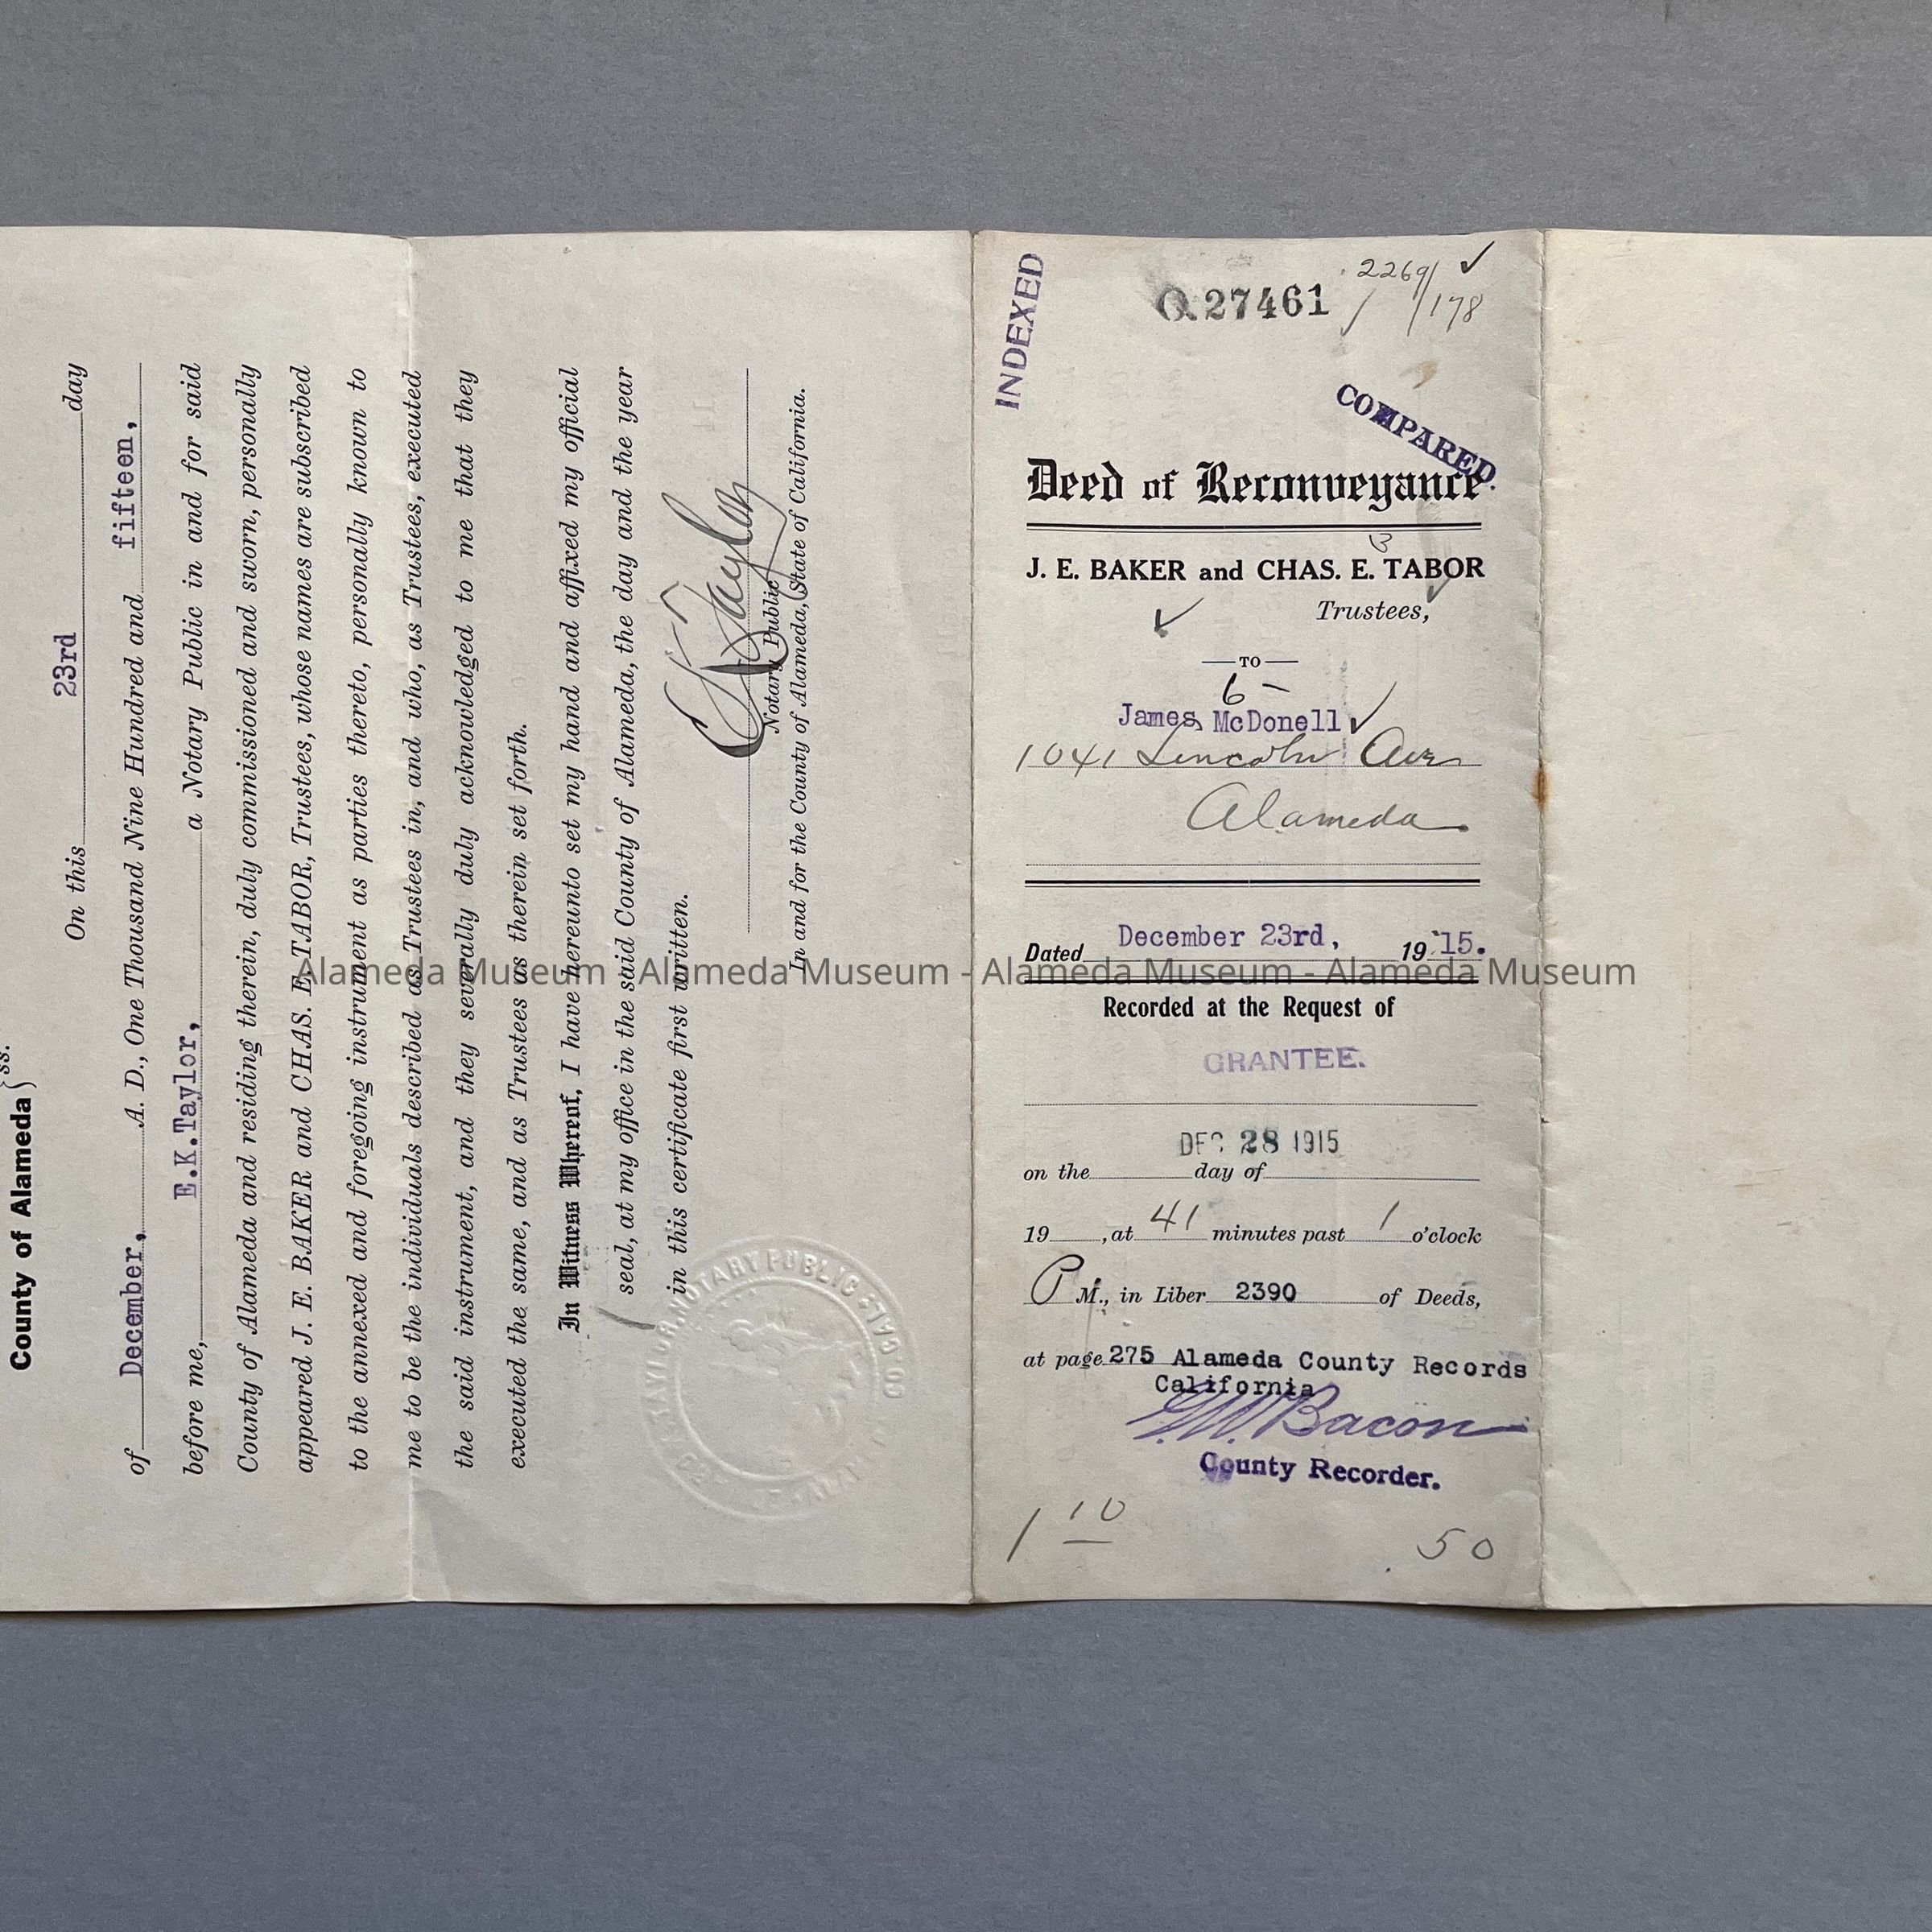 County of Alameda } ss.
On this 23rd day
of December, A. D., One Thousand Nine Hundred and fifteen,
before me, E.K.Taylor, a Notary Public in and for said
County of Alameda and residing therein, duly commissioned and sworn, personally
appeared J. E. BAKER and CHAS. E. TABOR, Trustees, whose names are subscribed
to the annexed and foregoing instrument as parties thereto, personally known to
me to be the individuals described as Trustees in, and who, as Trustees, executed
the said instrument, and they severally duly acknowledged to me that they
executed the same, and as Trustees as therein set forth.
In Witness Whereof, I have hereunto set my hand and affixed my official
seal, at my office in the said County of Alameda, the day and the year
in this certificate first written.
E K Taylor
Notary Public
In and for the County of Alameda, State of California.
TAYLOR, NOTARY PUBLIC
INDEXED
Q 27461
2269/178
COMPARED.
Deed of Reconveyance
3
J. E. BAKER and CHAS. E. TABOR
Trustees,
TO
6 -
James McDonell
1041 Lincoln Ave
Alameda
Dated December 23rd, 1915.
Recorded at the Request of
GRANTEE.
DEC 28 1915
on the day of
19 , at 41 minutes past 1 o'clock
P M., in Liber 2390 of Deeds,
at page 275 Alameda County Records
California
G. W. Bacon
County Recorder.
1 10
50
Alameda Museum - Alameda Museum - Alameda Museum - Alameda Museum